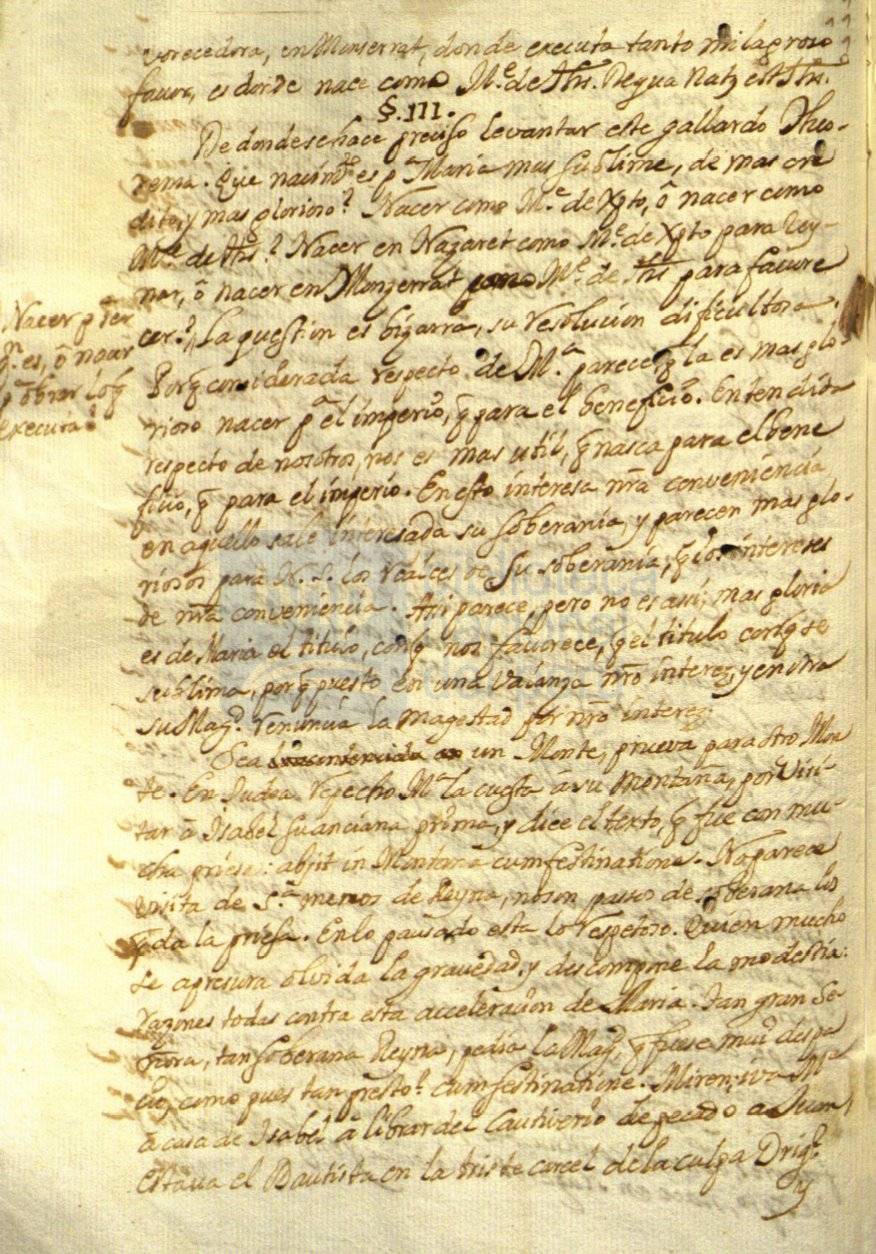 vorecedora, en Monserrat, donde executa tanto milagroso
favor, es donde nace como M.e de Jhs. De qua Natus est Jhs.
§. III.
De donde se hace preciso levantar este gallardo Theo-
rema. Que nacimto es pa Maria mas sublime, de mas cre
dito, y mas glorioso? Nacer como M.e de Xpto, ô nacer como
M.e de Jhs.? Nacer en Nazaret como M.e de Xpto para Rey-
nar, ô nacer en Monzerrat como M.e de Jhs para favore
cer? La question es bizarra, su resolucion dificultosa.
Nacer p ser
qn. es, ô nacer
pa obrar lo q
executa?
Porq considerada respecto de M.a parece q la es mas glo-
rioso nacer pa el imperio, q para el beneficio. Entendida
respecto de nosotros, nos es mas util, q nasca para el bene
ficio, q para el imperio. En esto interesa nra conveniencia,
en aquello sale interesada su soberania, y parecen mas glo-
riosos para N. S. los realces de su soberania, q los intereses
de nra conveniencia. Assi parece, pero no es assi; mas gloria
es de Maria el titulo, con q nos favorece, q el titulo con q se
sublima, porq puesto en una valanza nro interez, y en otra
su Magd. renuncia la magestad por nro interez.
Sea un Monte, prueva para otro Mon
te. En Judea repecho M.a la cuesta â su montaña, por visi-
tar â Isabel su anciana prima, y dice el texto, q fue con mu-
cha priesa: abijt in Montana cum festinatione. No parece
visita de S.ra menos de Reyna, no son passos de soberana los
q da la priesa. En lo pausado esta lo respetoso. Quien mucho
se apresura olvida la gravedad, y descompone la modestia:
razones todas contra esta acceleracion de Maria. Tan gran Se-
ñora, tan soberana Reyna, pedia la Magd, q fuese mui despa
cio, como pues tan presto? cum festinatione. Miren, iva M.a
â casa de Isabel â librar del Cautiverio de pecado a Juan,
estava el Bautista en la triste carcel de la culpa Orig.l
y